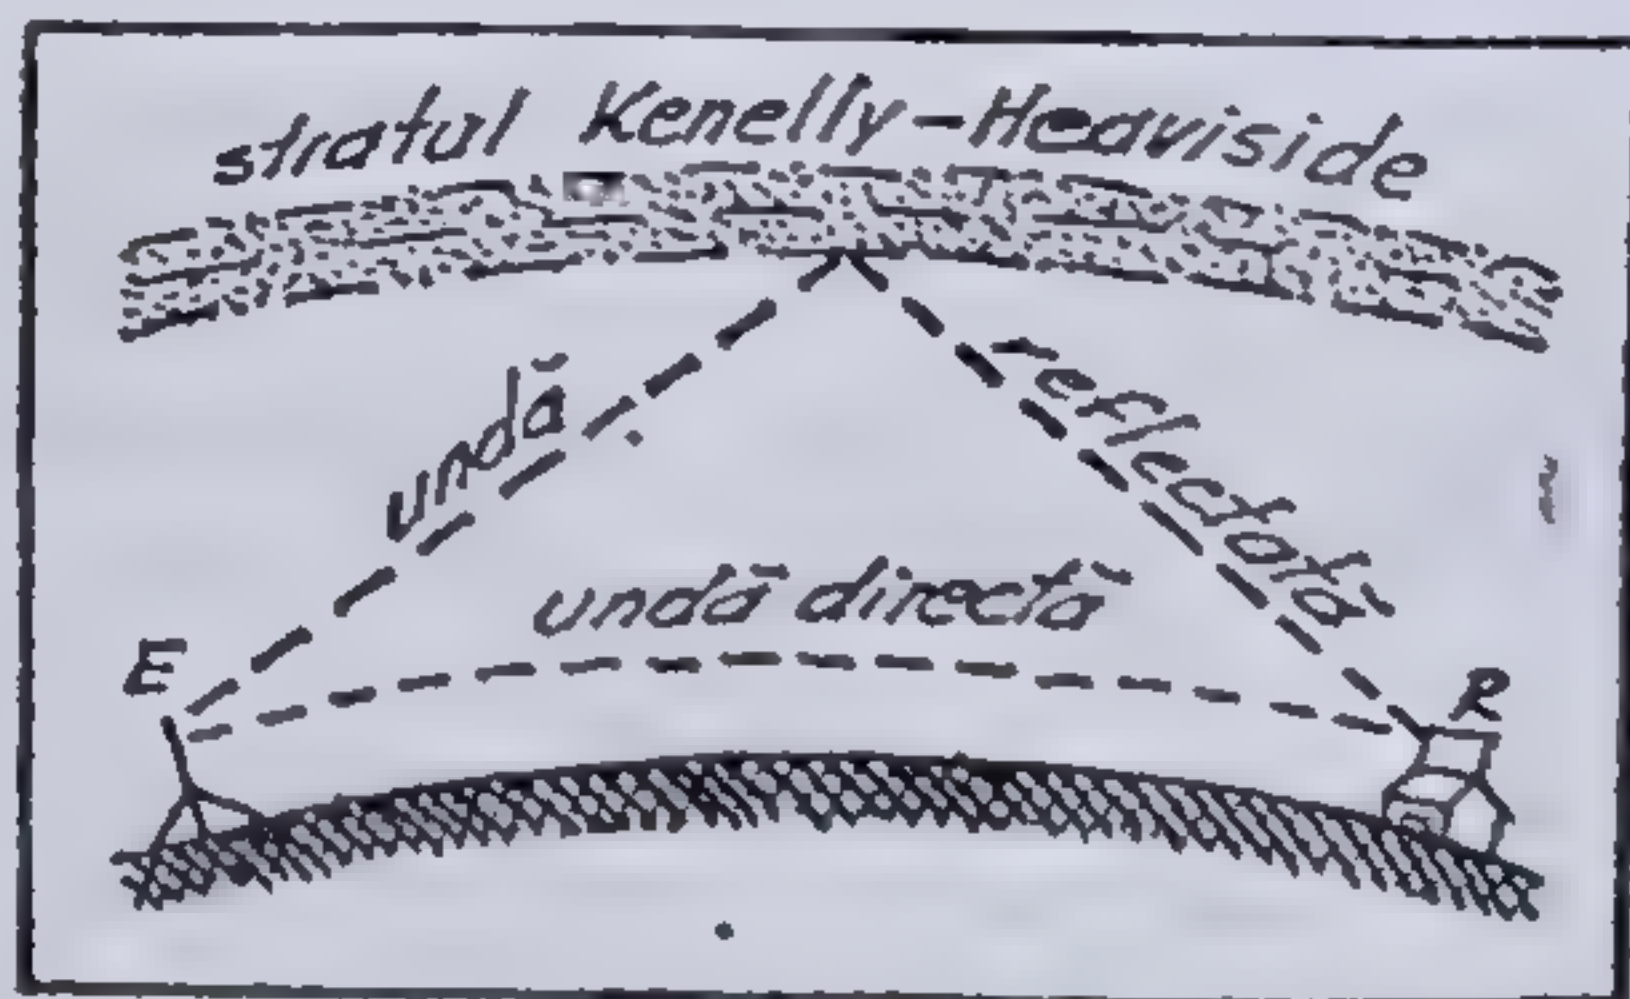 stratul Kenelly-Heaviside
undă reflectată
undă directă
E
R